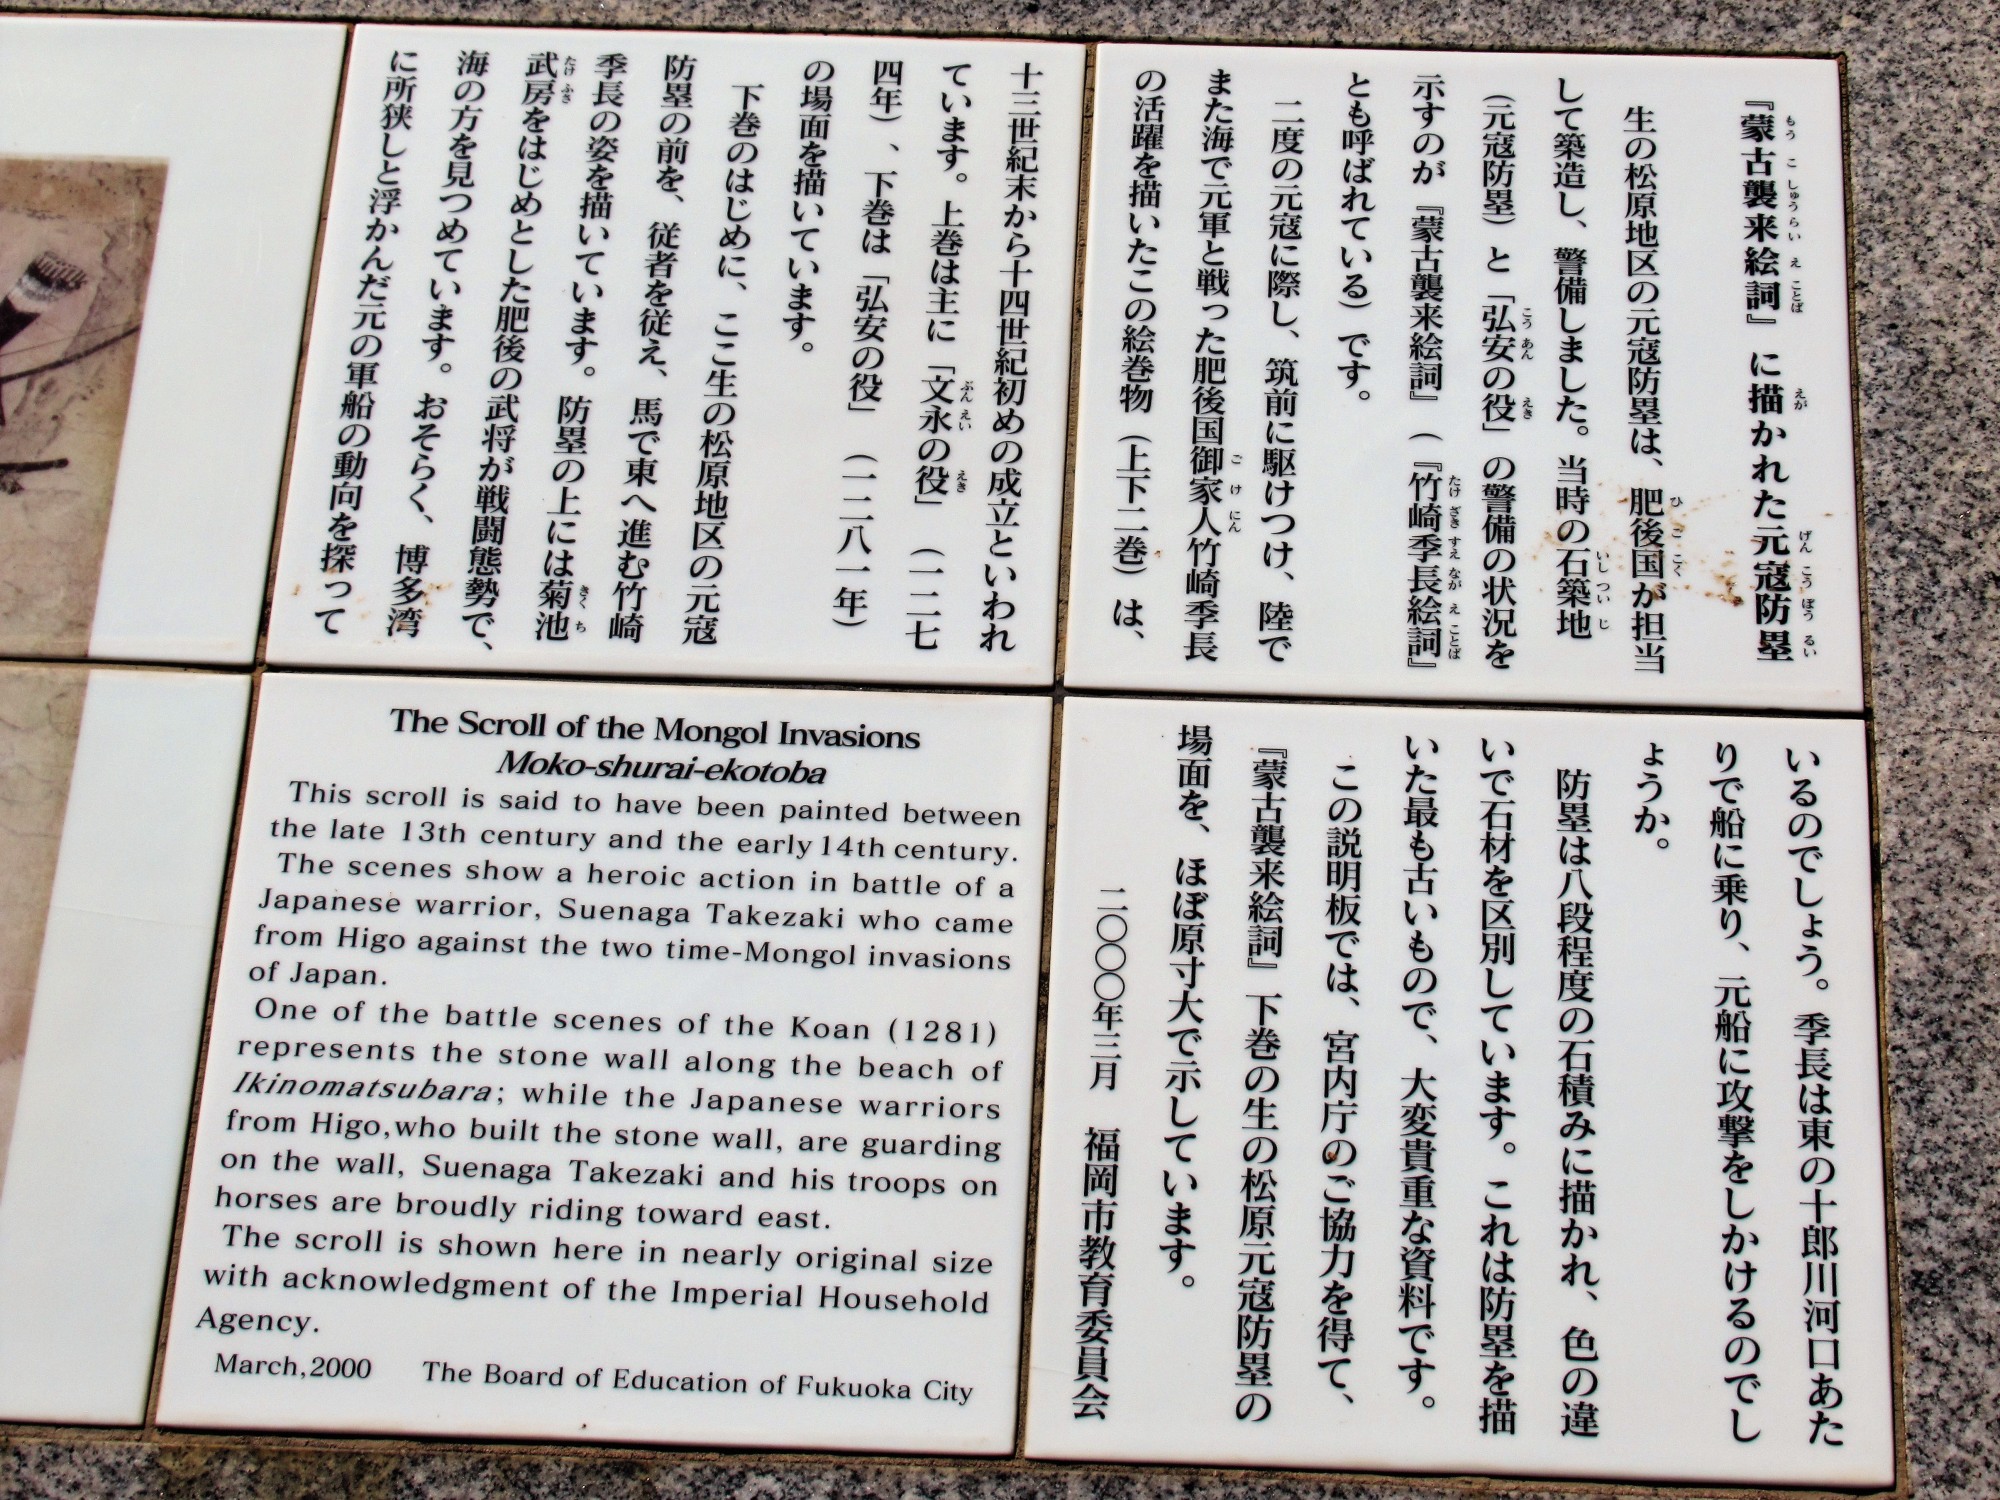 『蒙古襲来絵詞』に描かれた元寇防塁
生の松原地区の元寇防塁は、肥後国が担当
して築造し、警備しました。当時の石築地
（元寇防塁）と「弘安の役」の警備の状況を
示すのが『蒙古襲来絵詞』（『竹崎季長絵詞』
とも呼ばれている）です。
二度の元寇に際し、筑前に駆けつけ、陸で
また海で元軍と戦った肥後国御家人竹崎季長
の活躍を描いたこの絵巻物（上下二巻）は、
十三世紀末から十四世紀初めの成立といわれ
ています。上巻は主に「文永の役」（一二七
四年）、下巻は「弘安の役」（一二八一年）
の場面を描いています。
下巻のはじめに、ここ生の松原地区の元寇
防塁の前を、従者を従え、馬で東へ進む竹崎
季長の姿を描いています。防塁の上には菊池
武房をはじめとした肥後の武将が戦闘態勢で、
海の方を見つめています。おそらく、博多湾
に所狭しと浮かんだ元の軍船の動向を探って
いるのでしょう。季長は東の十郎川河口あた
りで船に乗り、元船に攻撃をしかけるのでし
ょうか。
防塁は八段程度の石積みに描かれ、色の違
いで石材を区別しています。これは防塁を描
いた最も古いもので、大変貴重な資料です。
この説明板では、宮内庁のご協力を得て、
『蒙古襲来絵詞』下巻の生の松原元寇防塁の
場面を、ほぼ原寸大で示しています。
二〇〇〇年三月　福岡市教育委員会
The Scroll of the Mongol Invasions
Moko-shurai-ekotoba
This scroll is said to have been painted between
the late 13th century and the early 14th century.
The scenes show a heroic action in battle of a
Japanese warrior, Suenaga Takezaki who came
from Higo against the two time-Mongol invasions
of Japan.
One of the battle scenes of the Koan (1281)
represents the stone wall along the beach of
Ikinomatsubara; while the Japanese warriors
from Higo,who built the stone wall, are guarding
on the wall, Suenaga Takezaki and his troops on
horses are broudly riding toward east.
The scroll is shown here in nearly original size
with acknowledgment of the Imperial Household
Agency.
March,2000 The Board of Education of Fukuoka City